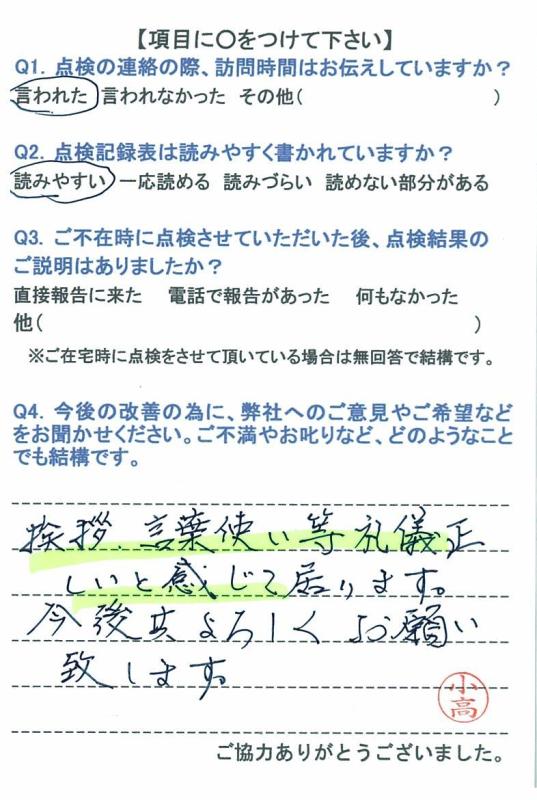 【項目に〇をつけて下さい】
Q1. 点検の連絡の際、訪問時間はお伝えしていますか？
言われた 言われなかった その他( )
Q2. 点検記録表は読みやすく書かれていますか？
読みやすい 一応読める 読みづらい 読めない部分がある
Q3. ご不在時に点検させていただいた後、点検結果の
ご説明はありましたか？
直接報告に来た 電話で報告があった 何もなかった
他( )
※ご在宅時に点検をさせて頂いている場合は無回答で結構です。
Q4. 今後の改善の為に、弊社へのご意見やご希望など
をお聞かせください。ご不満やお叱りなど、どのようなこと
でも結構です。
挨拶、言葉使い等礼儀正
しいと感じて居ります。
今後共よろしくお願い
致します。
小高
ご協力ありがとうございました。